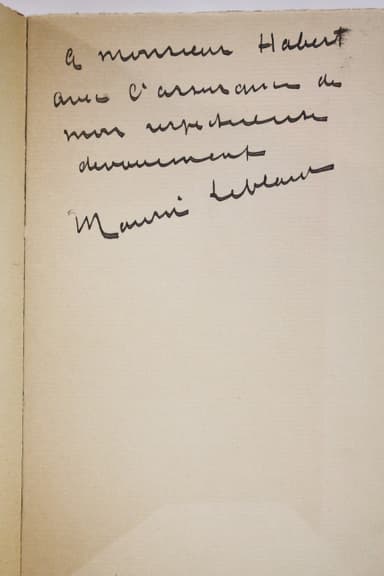 a monsieur Habert
avec l'assurance de
mon respectueux
devouement
Maurice Leblanc